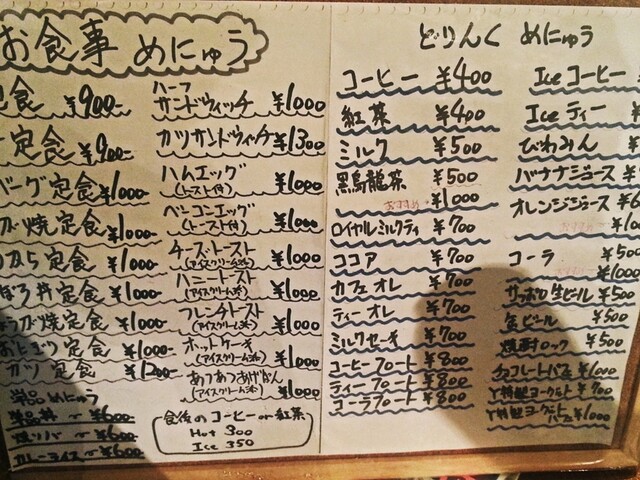 お食事 めにゅう
定食 ¥900-
定食 ¥900-
バーグ定食 ¥1000
が焼定食 ¥1000-
から定食 ¥1000-
ぼろ丼定食 ¥1000-
うが焼定食 ¥1000-
定食 ¥1000-
カツ定食 ¥1200-
単品めにゅう
単品丼 ~ ¥600-
¥600-
カレーライス ~ ¥600-
ハーフ
サンドウィッチ ¥1000
カツサンドウィッチ ¥1300
ハムエッグ
(トースト付) ¥1000
ベーコンエッグ
(トースト付) ¥1000
チーズ・トースト
(アイスクリーム添) ¥1000
ハニートースト
(アイスクリーム添) ¥1000
フレンチトースト
(アイスクリーム添) ¥1000
ホットケーキ
(アイスクリーム添) ¥1000
あつあつあげぱん
(アイスクリーム添) ¥1000
食後のコーヒー or 紅茶
Hot 300
Ice 350
どりんく めにゅう
コーヒー ¥400
紅茶 ¥400
ミルク ¥500
黒烏龍茶 ¥500
おすすめ ¥1000
ロイヤルミルクティ ¥700
ココア ¥700
カフェオレ ¥700
ティーオレ ¥700
ミルクセーキ ¥700
コーヒーフロート ¥800
ティーフロート ¥800
コーラフロート ¥800
Iceコーヒー
Iceティー ¥
びわみん ¥
バナナジュース ¥
オレンジジュース ¥6
おすすめ ¥10
コーラ ¥500
¥1000
サッポロ生ビール ¥500
缶ビール ¥500
焼酎ロック ¥500
チョコレートパフェ ¥1000
Y特製ヨーグルト ¥700
Y特製ヨーグルト
パフェ ¥1000